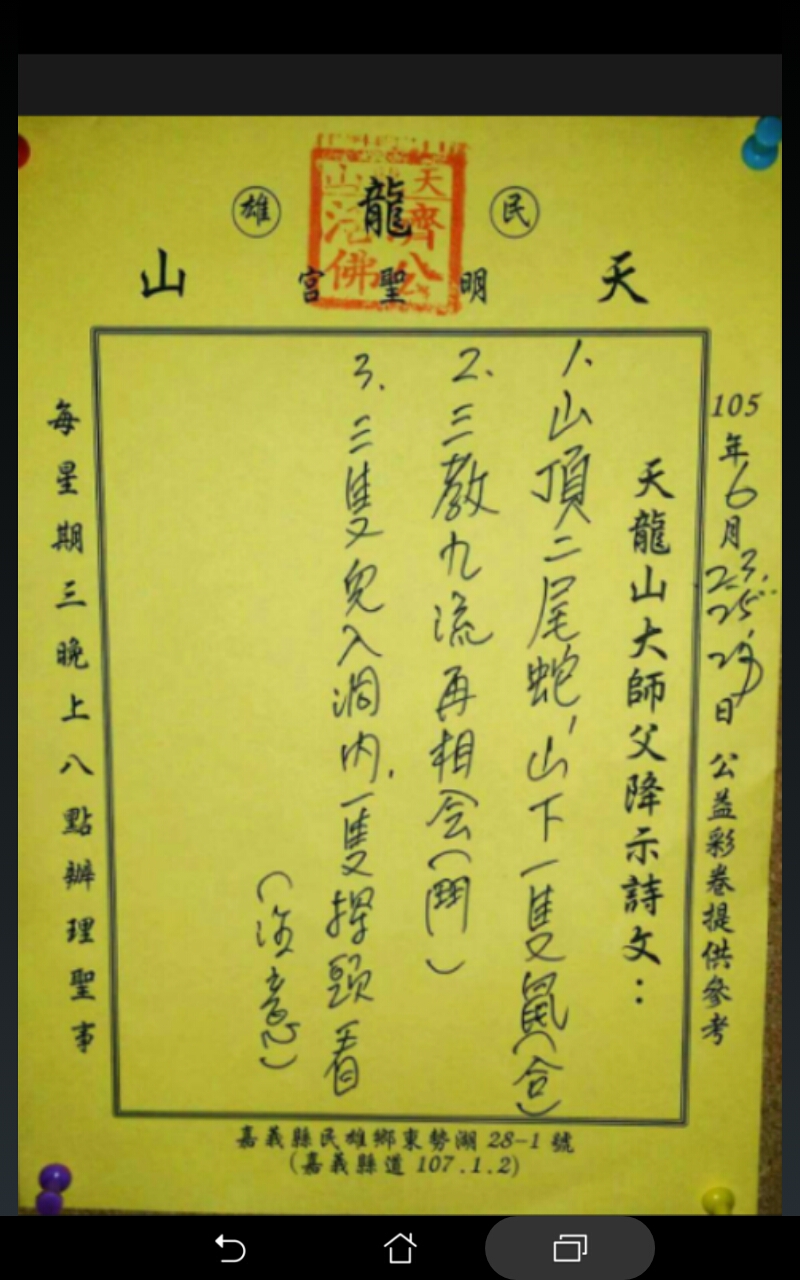 民 龍 雄
天 明 聖 宮 山
天 齊公
山 活佛
105年6月23.25.27日 公益彩卷提供參考
天龍山大師父降示詩文：
1.山頂二尾蛇，山下一隻鼠(合)
2.三教九流再相会(鬥)
3.三隻兔入洞內，一隻探頭看
(注意)
每星期三晚上八點辦理聖事
嘉義縣民雄鄉東勢湖28-1號
(嘉義縣道107.1.2)